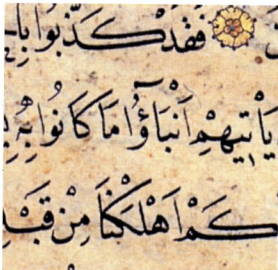 فَقَدْ كَذَّبُوا
يَأْتِيهِمْ أَنْبَٰٓؤُا مَا كَانُوا بِهِ
كَمْ أَهْلَكْنَا مِنْ